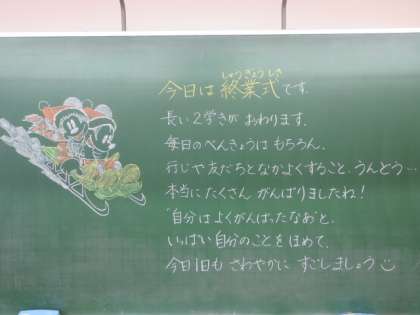 しゅうぎょうしき
今日は 終業式です。
長い2学きが おわります。
毎日のべんきょうは もちろん、
行じや友だちとなかよくすること、うんどう…
本当にたくさん がんばりましたね!
"自分は よくがんばったなあ"と、
いっぱい 自分のことを ほめて、
今日1日も さわやかに すごしましょう